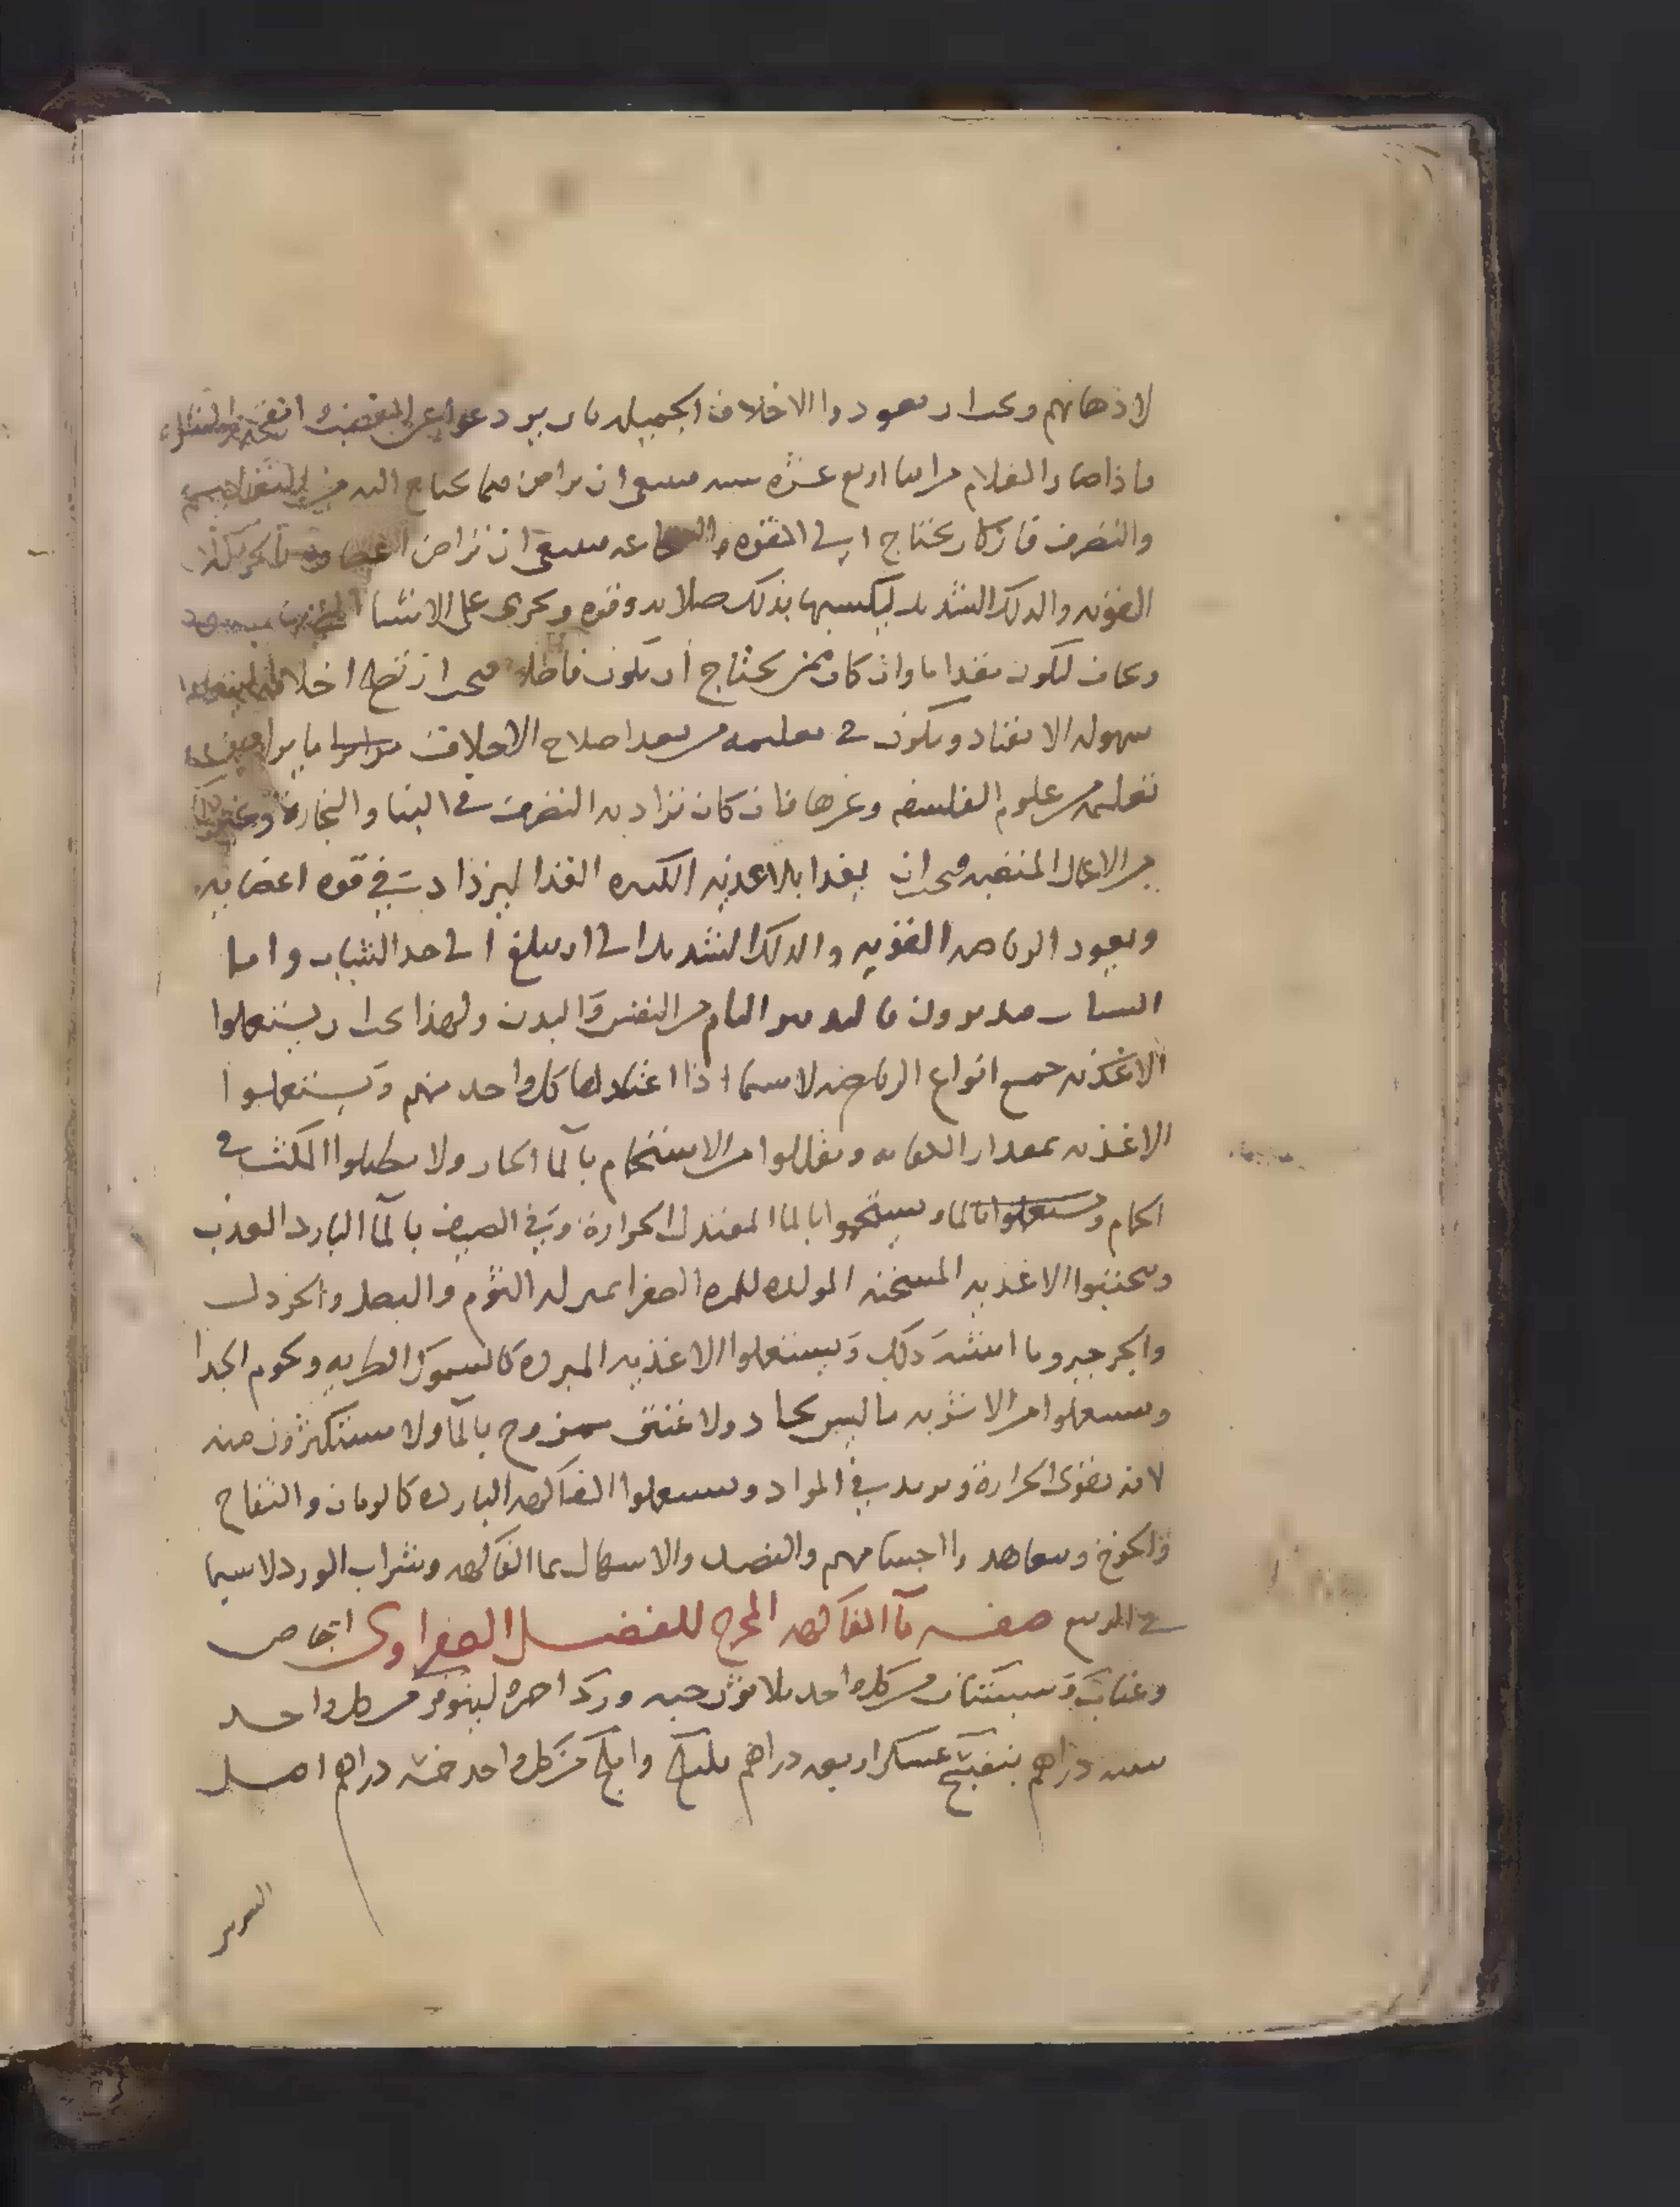 لاذهانهم ويجب ان يعودوا الاخلاق الجميله بان يردعوا عن الغضب
فاذا صار الغلام من ابنا اربع عشره سنه فينبغي ان يراض فيما يحتاج اليه من
والتصرف فان كان يحتاج الى القوه والشجاعه فينبغي ان تراض
القويه والدلك الشديد ليكسبها بذلك صلابه وقوه ويجرى على الاشيا
ويخاف ليكون مقداما وان كان ممن يحتاج أن يكون فاضلا فيجب ان تصلح اخلاقه
سهوله الانقياد ويكون في تعليمه من بعد اصلاح الاخلاق
تعليمه من علوم الفلسفه وغيرها فان كان يراد به التصرف في البنا والنجارة وغيرها
من الاعمال المتعبه فيجب ان يغدا بالاغذيه الكثيره الغذا ليزداد في قوه اعضايه
ويعود الرياضه القويه والدلك الشديد الى ان يبلغ الى حد الشباب واما
الشباب فيدبرون بالتدبير التام من النفس والبدن ولهذا يجب ان يستعملوا
الاغذيه جميع انواع الرياضه لاسيما اذا اعتادها كل واحد منهم ويستعملوا
الاغذيه بمقدار الكفايه ويقللوا من الاستحمام بالمآ الحار ولا يطيلوا المكث في
الحمام ويستعملوا بالما ويستحموا بالما المعتدل الحرارة وفي الصيف بالمآ البارد العذب
ويجتنبوا الاغذيه المسخنه المولده للمره الصفرا بمنزله الثوم والبصل والخردل
والجرجير وما اشبه ذلك ويستعملوا الاغذيه المبرده كالسموك الطريه ولحوم الجدا
ويستعملوا من الاشربه ما ليس بحاد ولا عتيق ممزوج بالمآ ولا يستكثرون منه
لانه يقوى الحرارة ويزيد في المواد ويستعملوا الفاكهه البارده كالرمان والتفاح
والخوخ ويتعاهدوا اجسامهم والفصد والاسهال بما الفاكهه وشراب الورد لاسيما
في الربيع صفه مآ الفاكهه المخرج للفضل الصفراوى اجاص
وعناب وسبستان من كل واحد ثلاثون حبه ورد احمر لينوفر من كل واحد
سته دراهم بنفسج عسكر اربعه دراهم هليلج واملج من كل واحد خمسه دراهم اصل